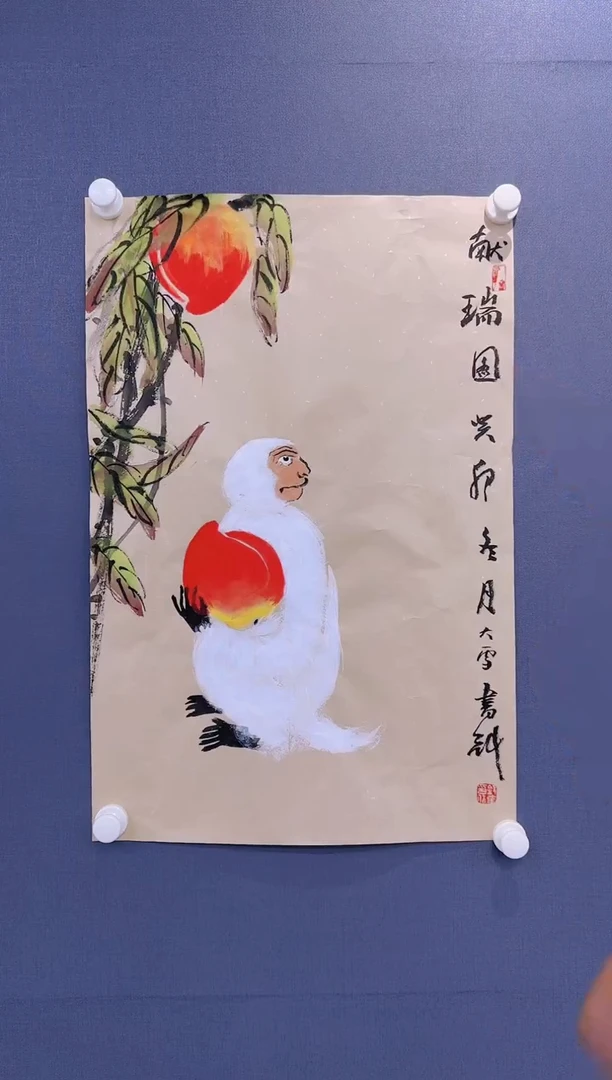 献瑞图癸卯冬月大雪书钺